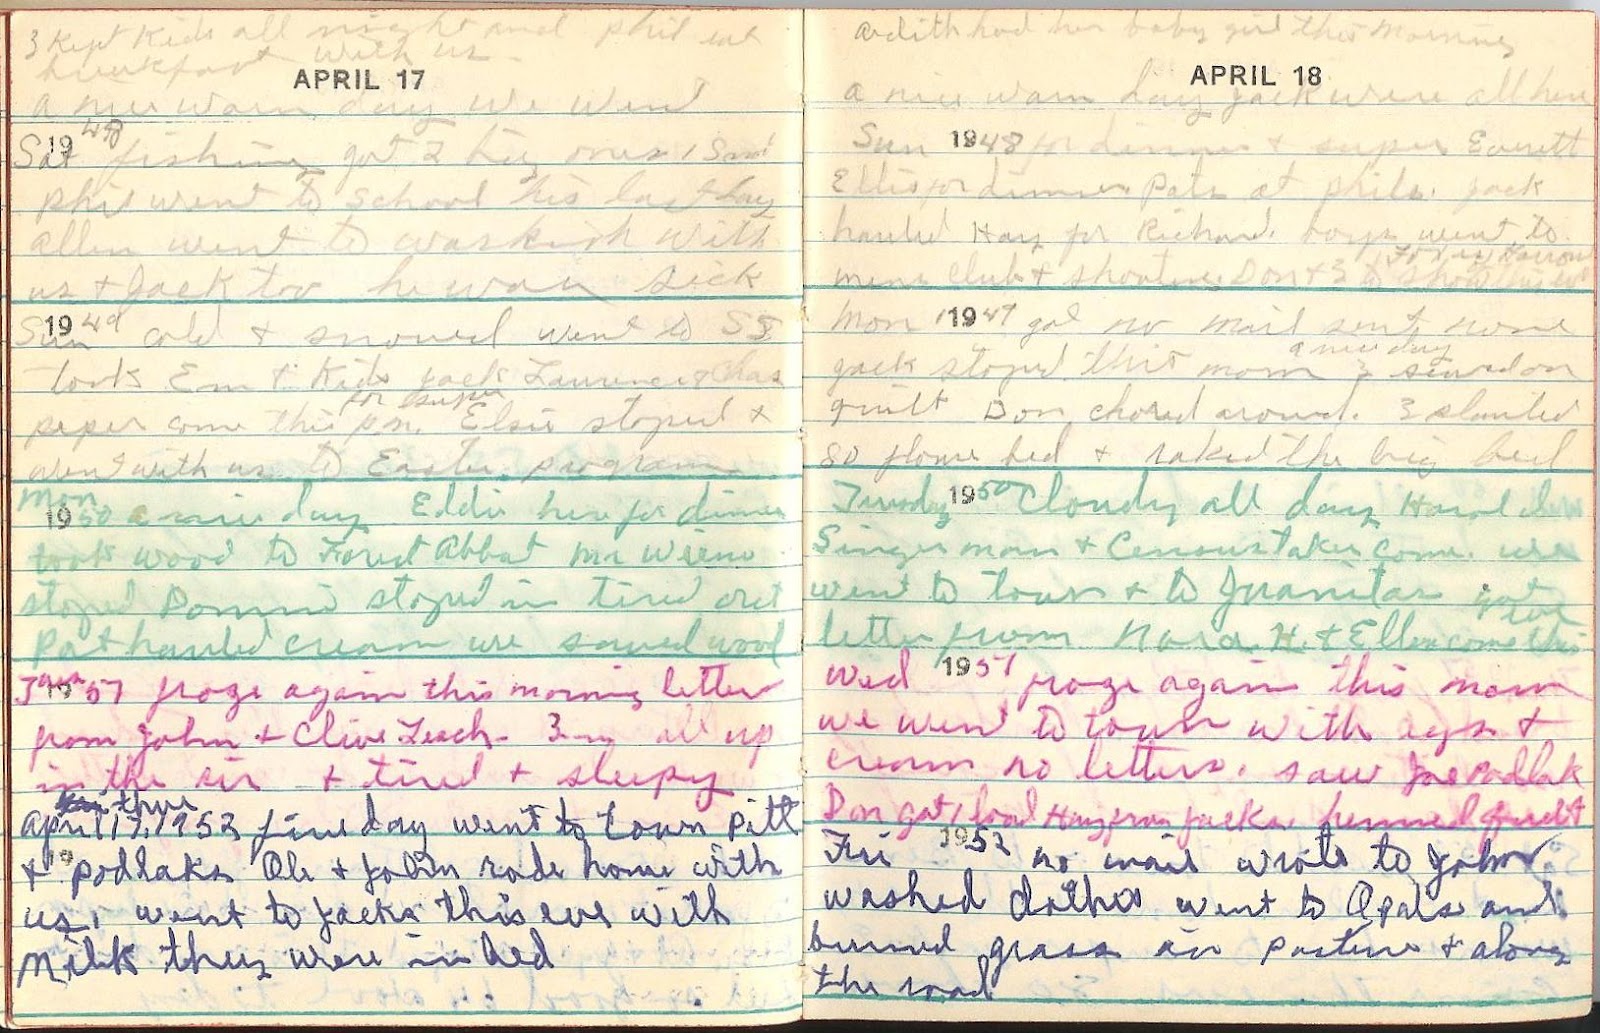 3 Kept Kids all night and phil eat
breakfast with us.
APRIL 17
a nice warm day we went
Sat 1948 fishing got 2 big ones, 1 Small
phil went to School his last day
allen went to with
us + Jack too he was sick
Sun 1949 cold + snowed went to SS
took Em + Kids Jack Laurence + Chas
for supper
peper come this p.m. Elsie stoped +
went with us to Easter program
Mon
1950 a nice day Eddie here for dinner
took wood to Forest Abbat Mr
stoped Donnie stoped in tired out
Pat hauled cream we sawed wood
1951 froze again this morning letter
from John + Clive Leach. 3 all up
in the air + tired + sleepy
thur
april 17, 1952 fine day went to town Pitt
+ 19 podlaks Ole + John rode home with
us, went to Jacks this eve with
Milk they were in bed
Ardith had her baby girl this Morning
APRIL 18
a nice warm day Jack were all here
Sun 1948 for dinner + super Everett
Ellis for dinner. Pats at phils. Jack
hauled Hay for Richard. boys went to
mens Club + shooting Don + 3 to
Mon 1949 got no mail sent none
a nice day
Jack stoped this morn 3 sewed on
quilt Don chored around. 3 planted
80 bed + raked the big bed
Tuesday 1950 Cloudy all day Harold
Singer man + Census taker come. we
went to town + to Juanitas got
letter from Nora. H. + Ellen come this
eve
Wed 1951 froze again this morn
we went to town with egs +
cream no letters. saw Joe Podlak
Don got 1 load Hay from Jacks. hemmed quilt
Fri 1952 no mail wrote to John
washed clothes went to Opals and
burned grass in pasture + along
the road